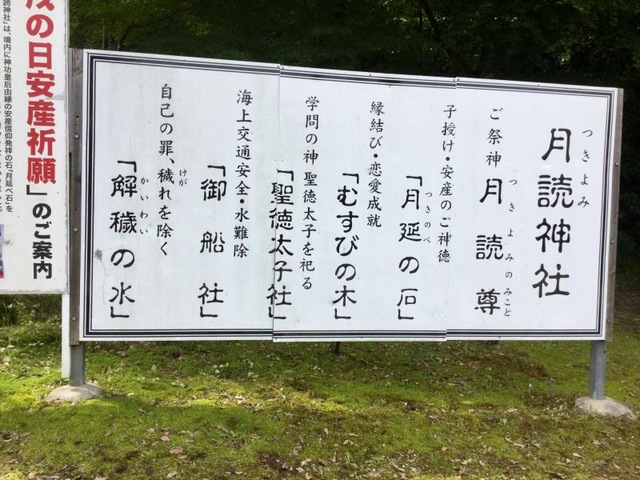 つきよみ
月読神社
ご祭神
つきよみのみこと
月読尊
子授け・安産のご神徳
つきのべ
「月延の石」
縁結び・恋愛成就
「むすびの木」
学問の神 聖徳太子を祀る
「聖徳太子社」
海上交通安全・水難除
「御船社」
けが
自己の罪、穢れを除く
かいわい
「解穢の水」
戌の日安産祈願」のご案内
読神社」は、境内に神功皇后由縁の安産信仰発祥の石「月延べ石」を